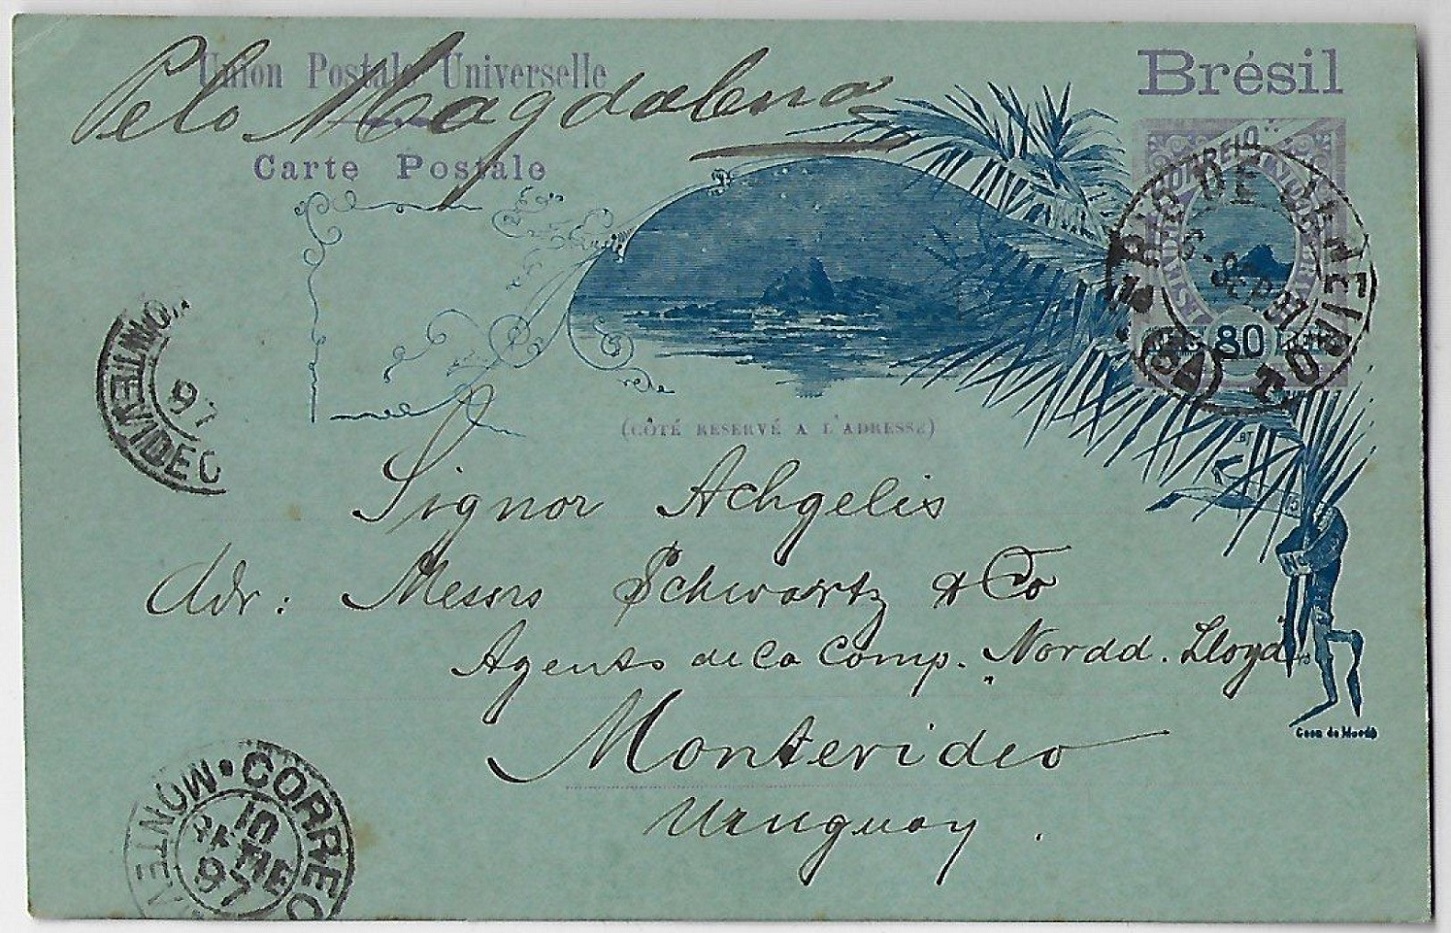 Union Postale Universelle
Brésil
Pelo Magdalena
Carte Postale
CORREIO
RIO DE JANEIRO
80
MONTEVIDEO
97
(CÔTÉ RESERVÉ A L'ADRESSE)
Signor Achgelis
Adr: Messrs Schwartz & Co
Agents de la Comp. Nordd. Lloyd
Montevideo
Uruguay.
Casa da Moeda
CORREO
MONTEVI
10
97